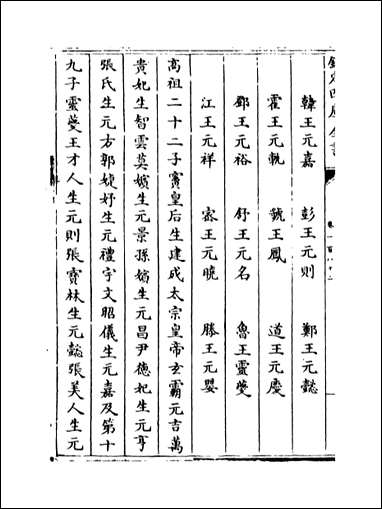 欽定四庫全書
卷一百八十二
韓王元嘉　彭王元則　鄭王元懿
霍王元軌　虢王鳳　道王元慶
鄧王元裕　舒王元名　魯王靈夔
江王元祥　密王元曉　滕王元嬰
高祖二十二子竇皇后生建成太宗皇帝玄霸元吉萬
貴妃生智雲莫嬪生元景孫嬪生元昌尹德妃生元亨
張氏生元方郭婕妤生元禮宇文昭儀生元嘉及第十
九子靈夔王才人生元則張寶林生元懿張美人生元